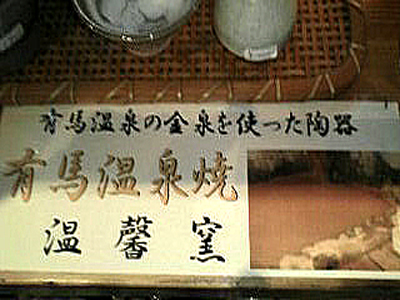 有馬温泉の金泉を使った陶器
有馬温泉焼
温馨窯